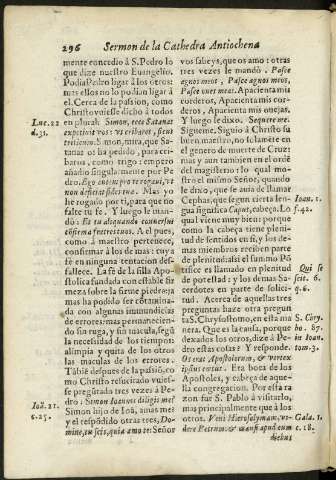 296 Sermon de la Cathedra Antiochena
mente concedio à S. Pedro lo
que dize nuestro Euangelio.
Podia Pedro ligar à los otros:
mas ellos no podian ligar à
el. Cerca de la passion, como
Christo vuiesse dicho à todos
Luc. 22
en plural: Simon, ecce Satanas
d. 31.
expetiuit vos: vt cribaret, sicut
triticum. Simon, mira, que Sa-
tanas os ha pedido, para cri-
baros, como trigo: empero
añadio singularmente por Pe
dro. Ego autem pro te rogaui, vt
non deficiat fides tua. Mas yo
he rogado por ti, para que no
falte tu fe. Y luego le man-
dò: Et tu aliquando conuersus
cõfirma fratres tuos. A el pues,
como à maestro pertenece,
confirmar à los de mas: cuya
fè en ninguna tentacion des-
fallece. La fè de la silla Apo-
stolica fundada con estable fir
meza sobre la firme piedra: ja
mas ha podido ser cõtamina-
da con algunas immundicias
de errores: mas permanecien-
do sin ruga, y sin macula, segũ
la necesidad de los tiempos
alimpia y quita de los otros
las maculas de los errores.
Tãbiẽ despues de la passiõ, co
mo Christo resucitado vuies-
se preguntado tres vezes à Pe
Ioã. 21.
dro: Simon Ioannis diligis me?
c. 15.
Simon hijo de Ioã, amas me?
y el respõdido otras tres, Do-
mine, tu scis, quia amo te: Señor
vos sabeys, que os amo: otras
tres vezes le mandò. Pasce
agnos meos, Pasce agnos meos,
Pasce oues meas. Apacienta mis
corderos, Apacienta mis cor-
deros, Apacienta mis ouejas.
Y luego se dixo. Sequere me.
Sigueme. Siguio à Christo su
buen maestro, no solamente en
el genero de muerte de Cruz:
mas y aun tambien en el ordẽ
del magisterio: lo qual mo-
stro el mismo Señor, quando
le dixo, que se auia de llamar
Cephas, que segun cierta len-
Ioan. 1.
gua significa Caput, cabeça. Lo
f. 42.
qual viene muy bien: porque
como la cabeça tiene pleni-
tud de sentidos en si, y los de-
mas miembros reciben parte
de plenitud: assi el summo Põ
tifice es llamado en plenitud
Qui se
de potestad: y los demas Sa-
scit. 6.
cerdotes en parte de solici-
q. 6.
tud. Acerca de aquellas tres
preguntas haze otra pregun
ta S. Chrysostomo, en esta ma
S. Chry.
nera. Que es la causa, porque
ho. 87.
dexados los otros, dize à Pe-
in Ioan.
dro estas cosas? Y responde.
tom. 3.
Os erat Apostolorum, & vertex
ipsius cœtus. Era boca de los
Apostoles, y cabeça de aque-
lla congregacion. Por esta ra
zon fue S. Pablo à visitarlo,
mas principalmente que à los
otros. Veni Hierosolymam, vi-
Gala. 1.
dere Petrum: & mansi apud eum
c. 18.
diebus